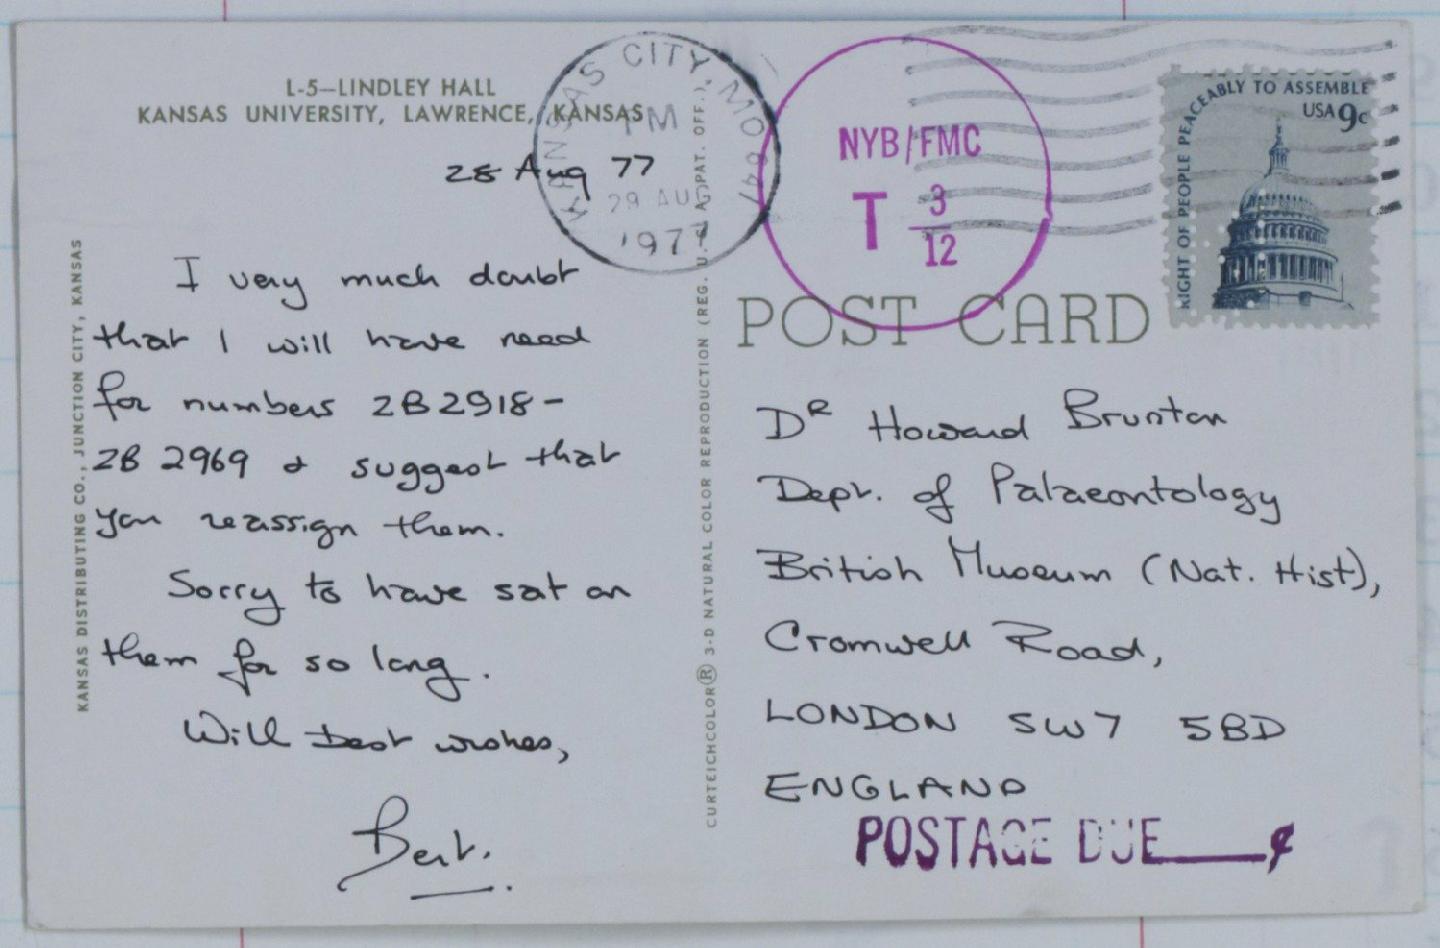 L-5—LINDLEY HALL
KANSAS UNIVERSITY, LAWRENCE, KANSAS
28 Aug 77
I very much doubt
that I will have need
for numbers ZB2918-
ZB 2969 & suggest that
you reassign them.
Sorry to have sat on
them for so long.
With best wishes,
Bert.
KANSAS DISTRIBUTING CO., JUNCTION CITY, KANSAS
CURTEICHCOLOR® 3-D NATURAL COLOR REPRODUCTION (REG. U.S.A. PAT. OFF.)
KANSAS CITY, MO
PM
29 AUG
1977
NYB/FMC
T 3/12
RIGHT OF PEOPLE PEACEABLY TO ASSEMBLE
USA 9c
POST CARD
DR Howard Brunton
Dept. of Palaeontology
British Museum (Nat. Hist),
Cromwell Road,
LONDON SW7 5BD
ENGLAND
POSTAGE DUE ____¢